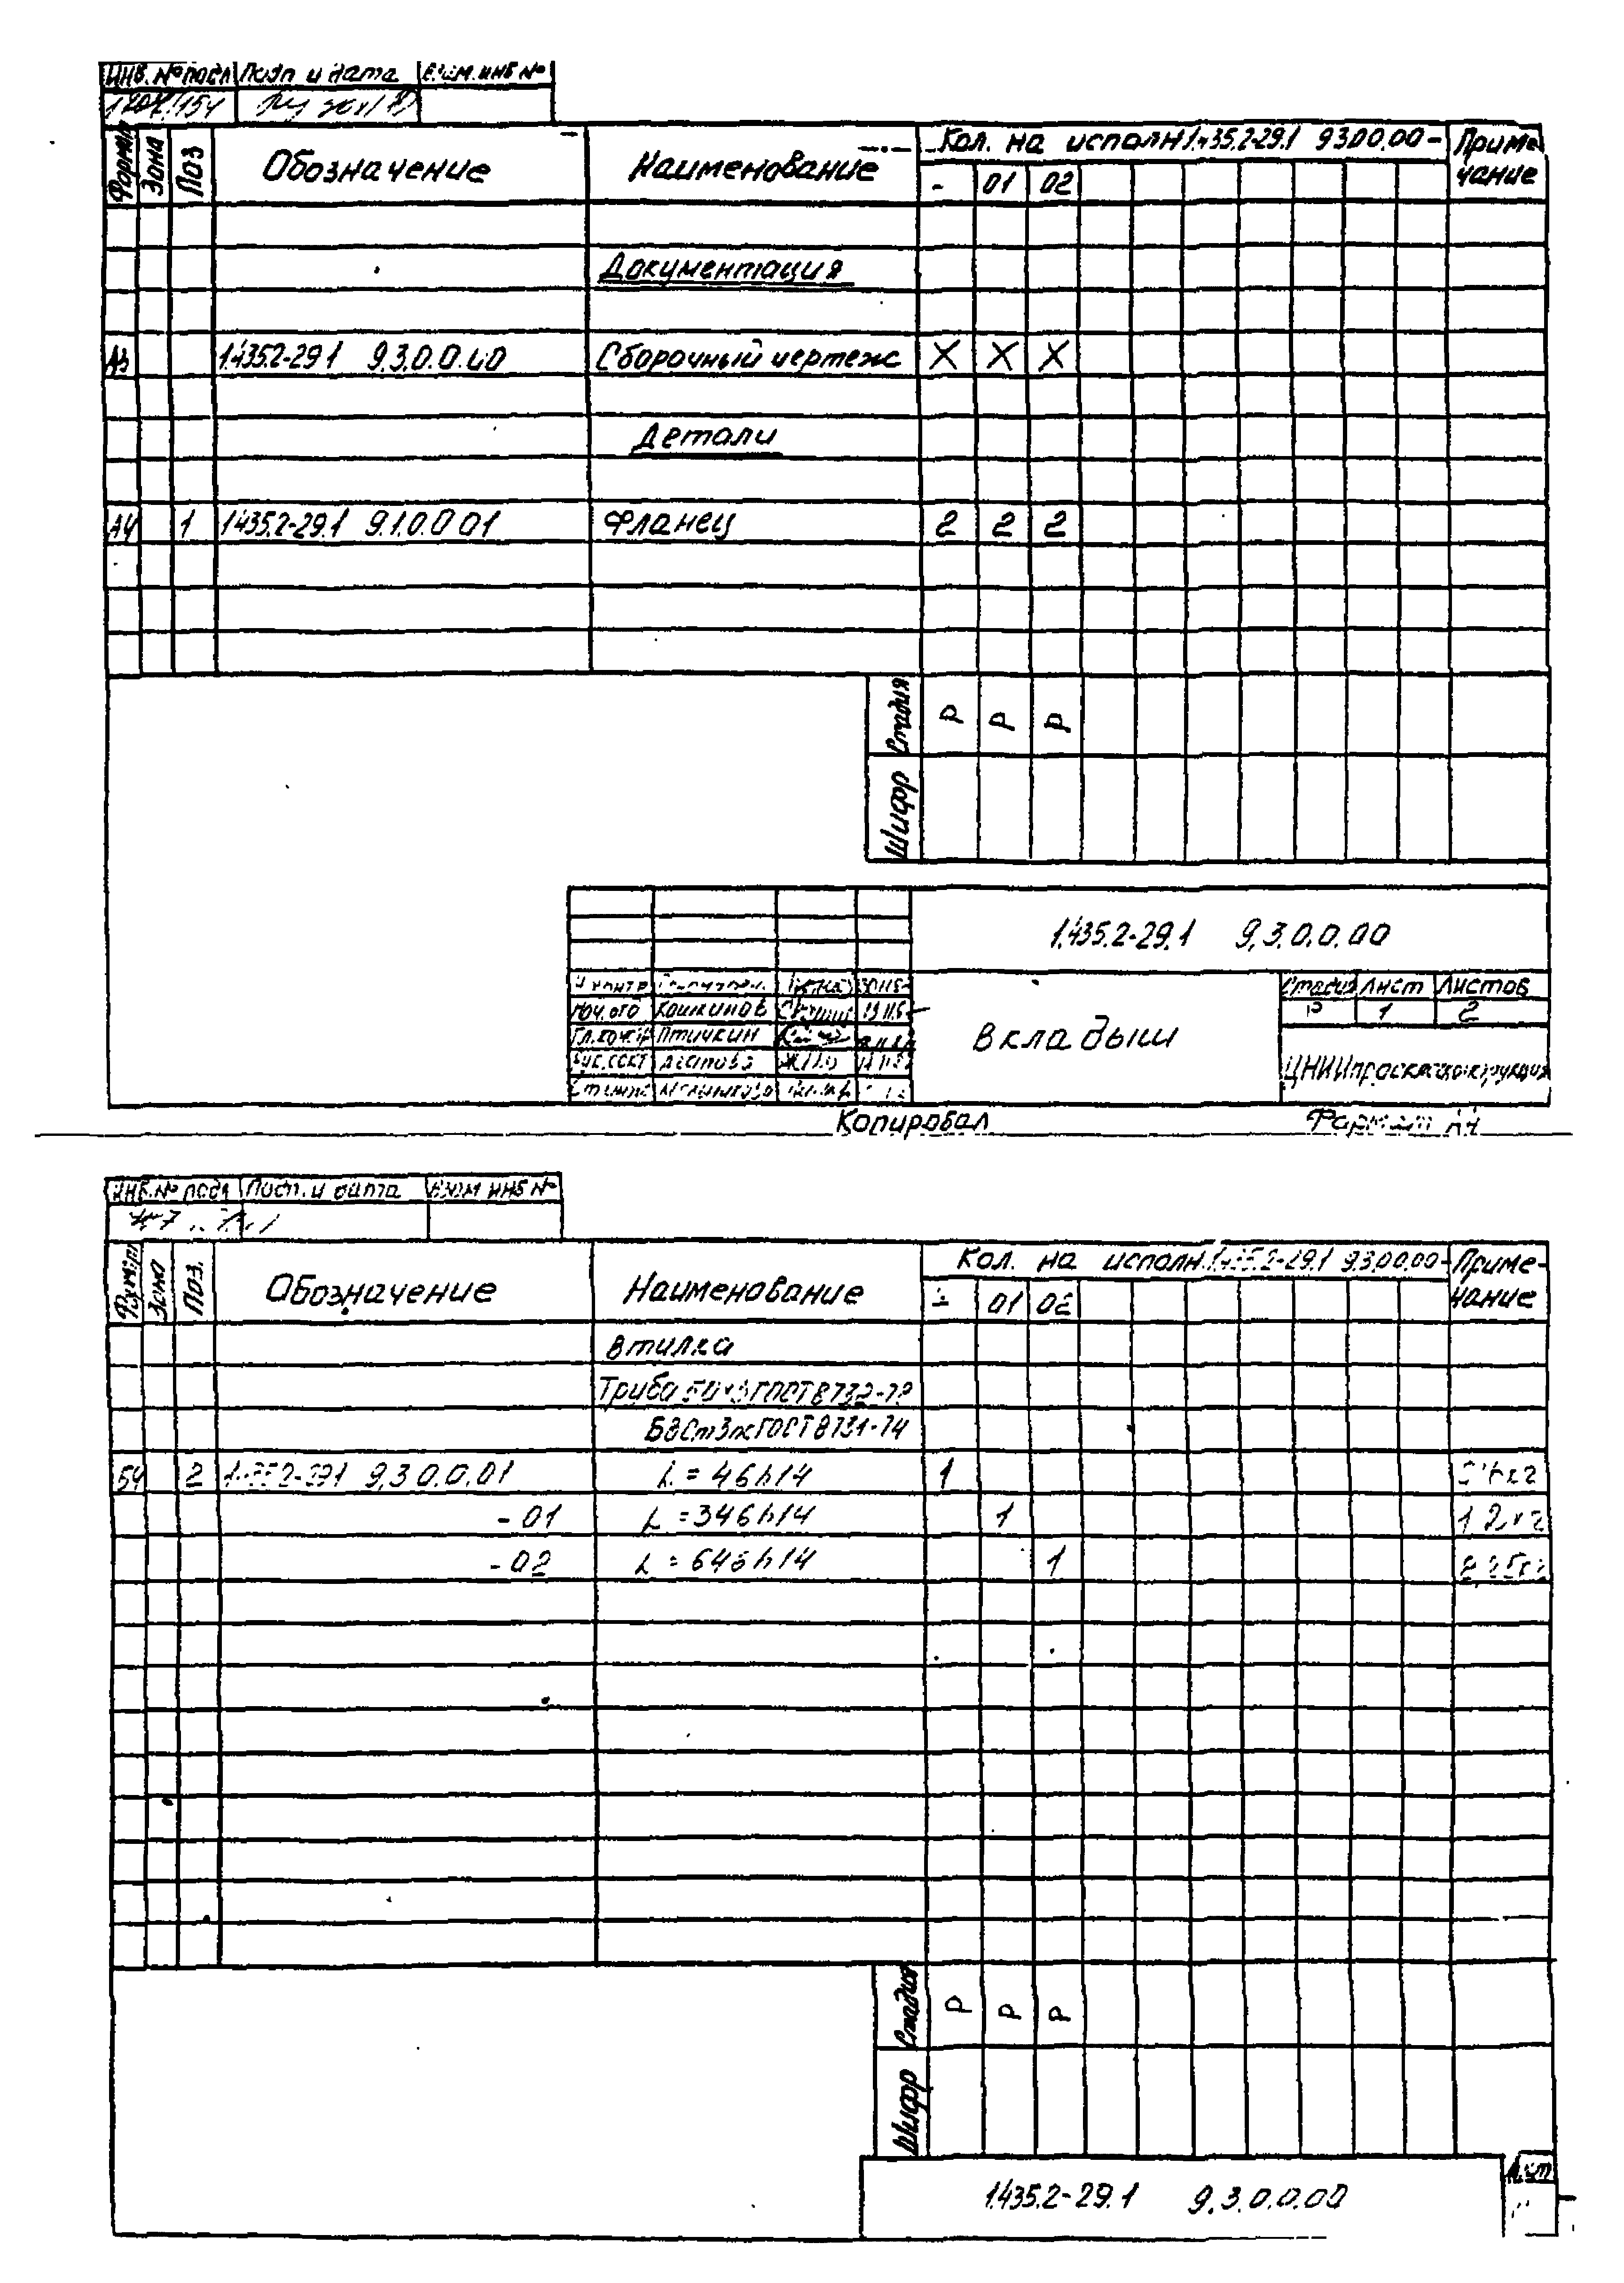 Инв. № подл Подп и дата Взам. инв №
Формат Зона Поз Обозначение Наименование Кол. на исполн 1.435.2-29.1 9.3.00.00- Приме
чание
- 01 02
Документация
А3 1.435.2-29.1 9.3.0.0.00 Сборочный чертеж X X X
Детали
А4 1 1.435.2-29.1 9.1.0.0 01 Фланец 2 2 2
Стадия Р Р Р
Шифр
1.435.2-29.1 9.3.0.0.00
Н контр
Нач. отд Кошкинов
Гл. констр Птичкин
Вкладыш
Стадия Лист Листов
Р 1 2
ЦНИИпроектконструкция
Копировал Формат А4
Инв. № подл Подп. и дата Взам инв №
Формат Зона Поз. Обозначение Наименование Кол. на исполн. 1.435.2-29.1 9.3.00.00- Приме-
чание
- 01 02
Втулка
Труба ГОСТ 8732-78
ГОСТ 8731-74
БЧ 2 1.435.2-29.1 9.3.0.0.01 L = 46 h14 1
- 01 L = 346 h14 1
- 02 L = 646 h14 1
Стадия Р Р Р
Шифр
1.435.2-29.1 9.3.0.0.00
Лист